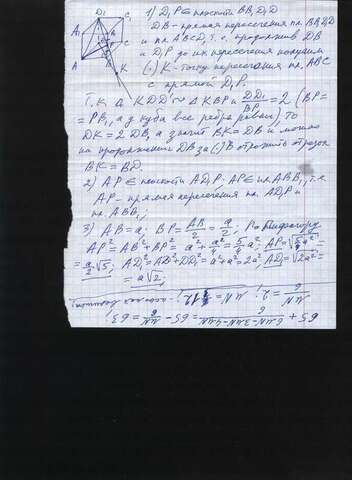 D₁
C₁
A₁
P
A
C
B
K
1) D₁P ∈ плоскости BB₁D₁D
DB - прямая пересечения пл. BB₁D₁D
и пл. ABCD, т.е. продолжив DB
и D₁P до их пересечения получим
(·) K - точку пересечения пл. ABC
с прямой D₁P.
Т.к. Δ KDD₁ ~ Δ KBP и DD₁/BP = 2 (BP =
= PB₁, а у куба все ребра равны) то
DK = 2DB, а значит BK = DB и можно
на продолжении DB за (·) B отложить отрезок
BK = BD.
2) AP ∈ плоскости AD₁P, AP ∈ пл. ABB₁, т.е.
AP - прямая пересечения пл. AD₁P и
пл. ABB₁
3) AB = a; BP = AB/2 = a/2; По Пифагору
AP² = AB² + BP² = a² + a²/4 = 5/4 a²; AP = √(5/4 a²) =
= a/2 √5; AD₁² = AD² + DD₁² = a² + a² = 2a²; AD₁ = √2a² =
= a√2,